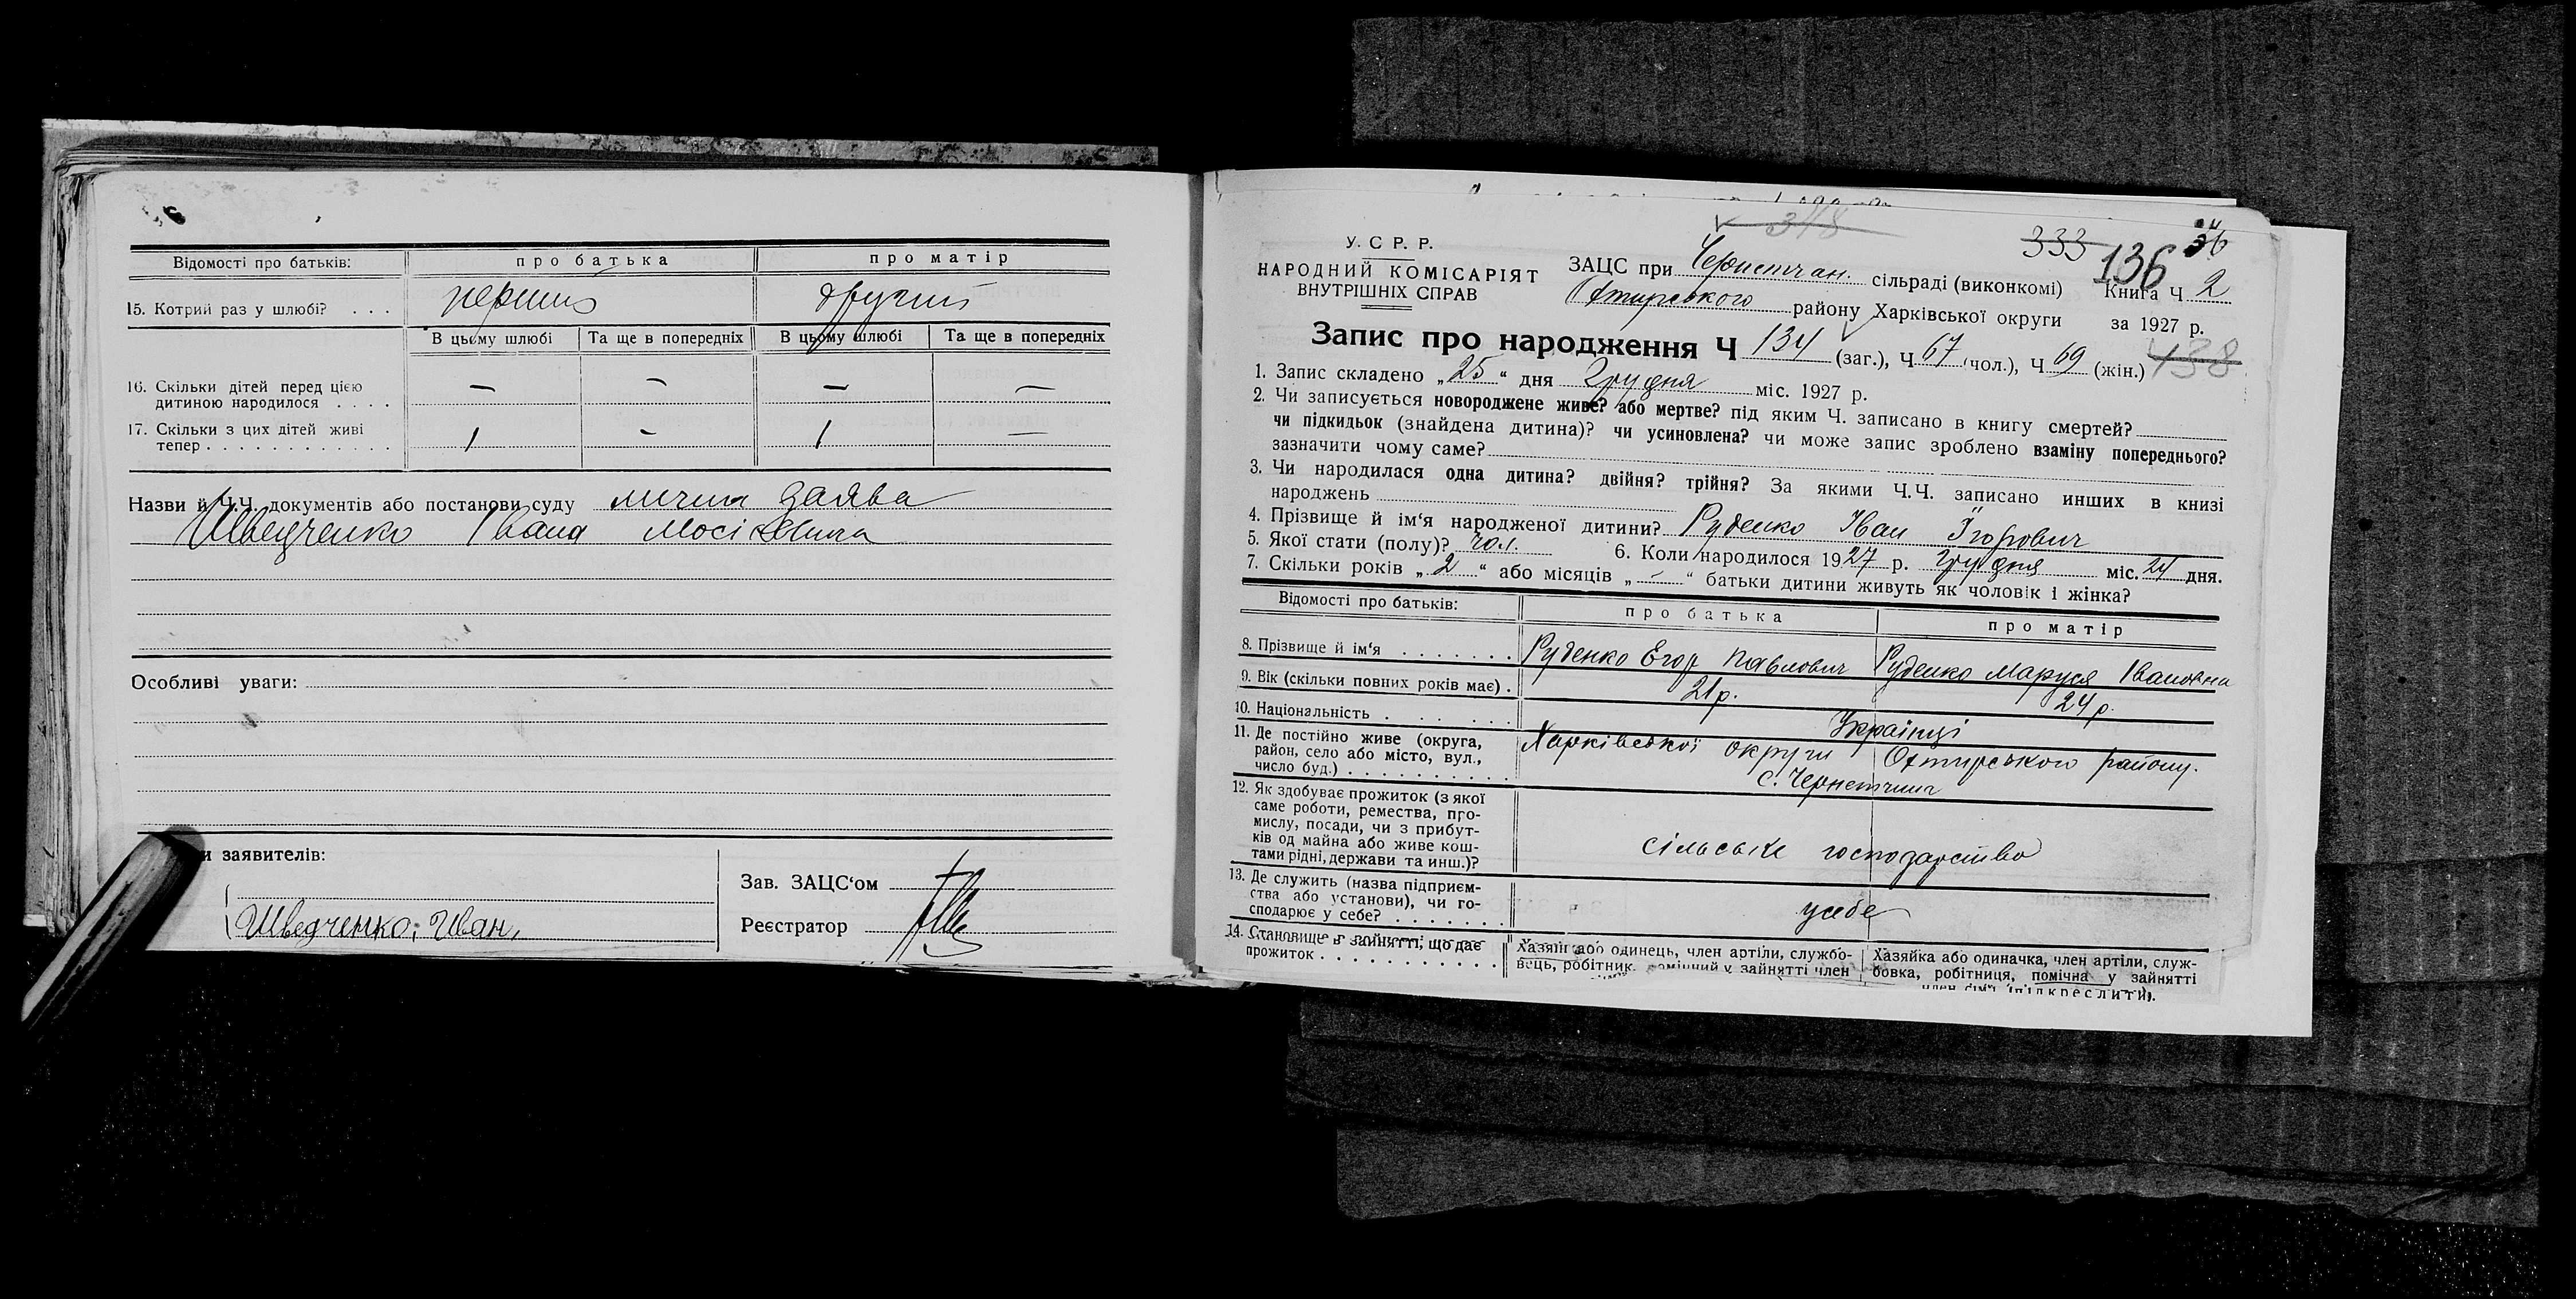 Відомості про батьків: про батька про матір
15. Котрий раз у шлюбі? . . . первий другий
В цьому шлюбі Та ще в попередніх В цьому шлюбі Та ще в попередніх
16. Скільки дітей перед цією
дитиною народилося . . . . — — — —
17. Скільки з цих дітей живі
тепер . . . . . . . . . . . . . 1 - 1 —
Назви й Ч.Ч. документів або постанови суду лична заява
Шведченко Івана Мосіовича
Особливі уваги:
и заявителів:
Шведченко, Иван,
Зав. ЗАЦС‘ом
Реєстратор
348
333 136 36
У. С Р. Р.
НАРОДНИЙ КОМІСАРІЯТ
ВНУТРІШНІХ СПРАВ
ЗАЦС при Чернетчан. сільраді (виконкомі) Книга Ч 2
Охтирського району Харківської округи за 1927 р.
Запис про народження Ч 134 (заг.), Ч. 67 (чол.), Ч 69 (жін.) 438
1. Запис складено „25“ дня Грудня міс. 1927 р.
2. Чи записується новороджене живе? або мертве? під яким Ч. записано в книгу смертей?
чи підкидьок (знайдена дитина)? чи усиновлена? чи може запис зроблено взаміну попереднього?
зазначити чому саме?
3. Чи народилася одна дитина? двійня? трійня? За якими Ч.Ч. записано инших в книзі
народжень
4. Прізвище й ім‘я народженої дитини? Руденко Іван Їгорович
5. Якої стати (полу)? чол. 6. Коли народилося 1927 р. Грудня міс. 24 дня.
7. Скільки років „2“ або місяців „-“ батьки дитини живуть як чоловік і жінка?
Відомості про батьків: про батька про матір
8. Прізвище й ім‘я . . . . . . . Руденко Егор Павлович Руденко Маруся Івановна
9. Вік (скільки повних років має) . 21 р. 24 р.
10. Національність . . . . . . Українці
11. Де постійно живе (округа,
район, село або місто, вул.,
число буд.) . . . . . . . . . . . Харківської округи Охтирського району.
с. Чернетчина
12. Як здобуває прожиток (з якої
саме роботи, ремества, про-
мислу, посади, чи з прибут-
ків од майна або живе кош-
тами рідні, держави та инш.)? сільське господарство
13. Де служить (назва підприєм-
ства або установи), чи го-
сподарює у себе? . . . . . . у себе
14. Становище в зайнятті, що дає
прожиток . . . . . . . . . . .
Хазяїн або одинець, член артіли, службо-
вець, робітник, помічний у зайнятті член
Хазяйка або одиначка, член артіли, служ-
бовка, робітниця, помічна у зайнятті
член сім‘ї (підкреслити).